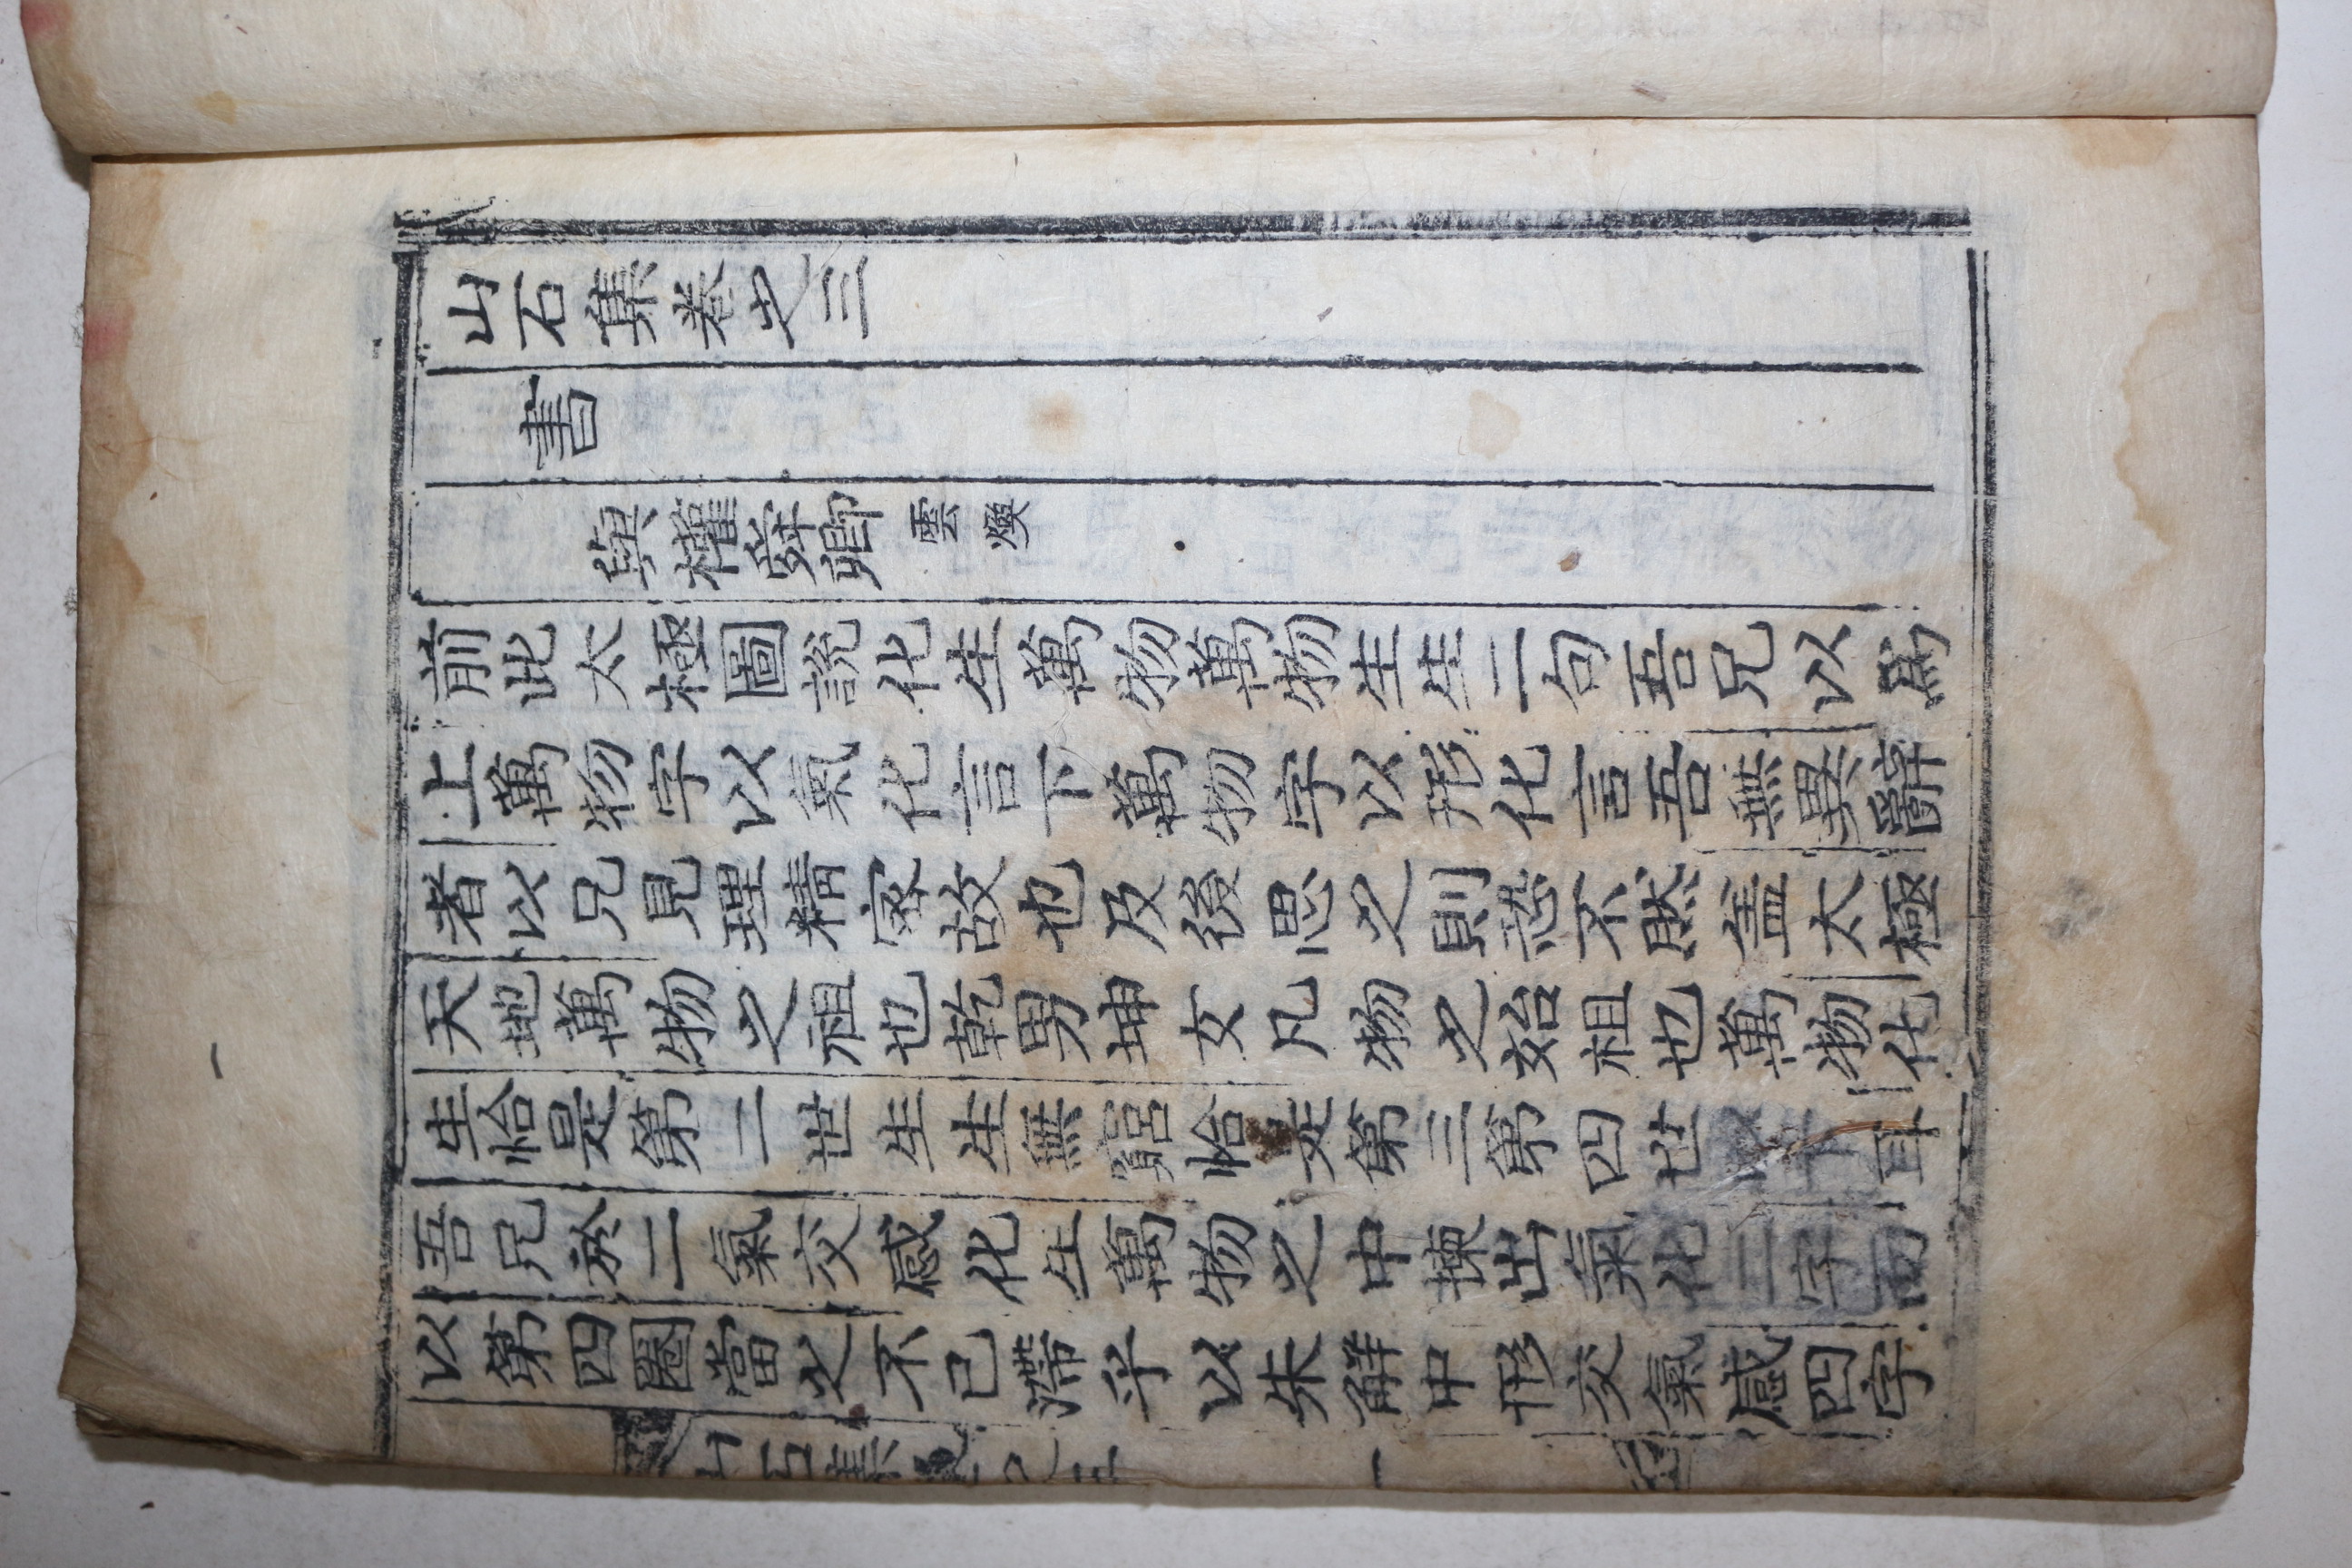 山石集卷之三
書
與權舜卿 雲煥
前此太極圖說化生萬物萬物生生二句吾兄以爲
上萬物字以氣化言下萬物字以形化言吾無異辭
者以兄見理精密故也及後思之則恐不然盖太極
天地萬物之祖也乾男坤女凡物之始祖也萬物化
生恰是第二世生生無窮恰是第三第四世以下耳
吾兄於二氣交感化生萬物之中揀出氣化二字而
以第四圈當之不已滯乎以朱解中形交氣感四字
山石集卷之三
一